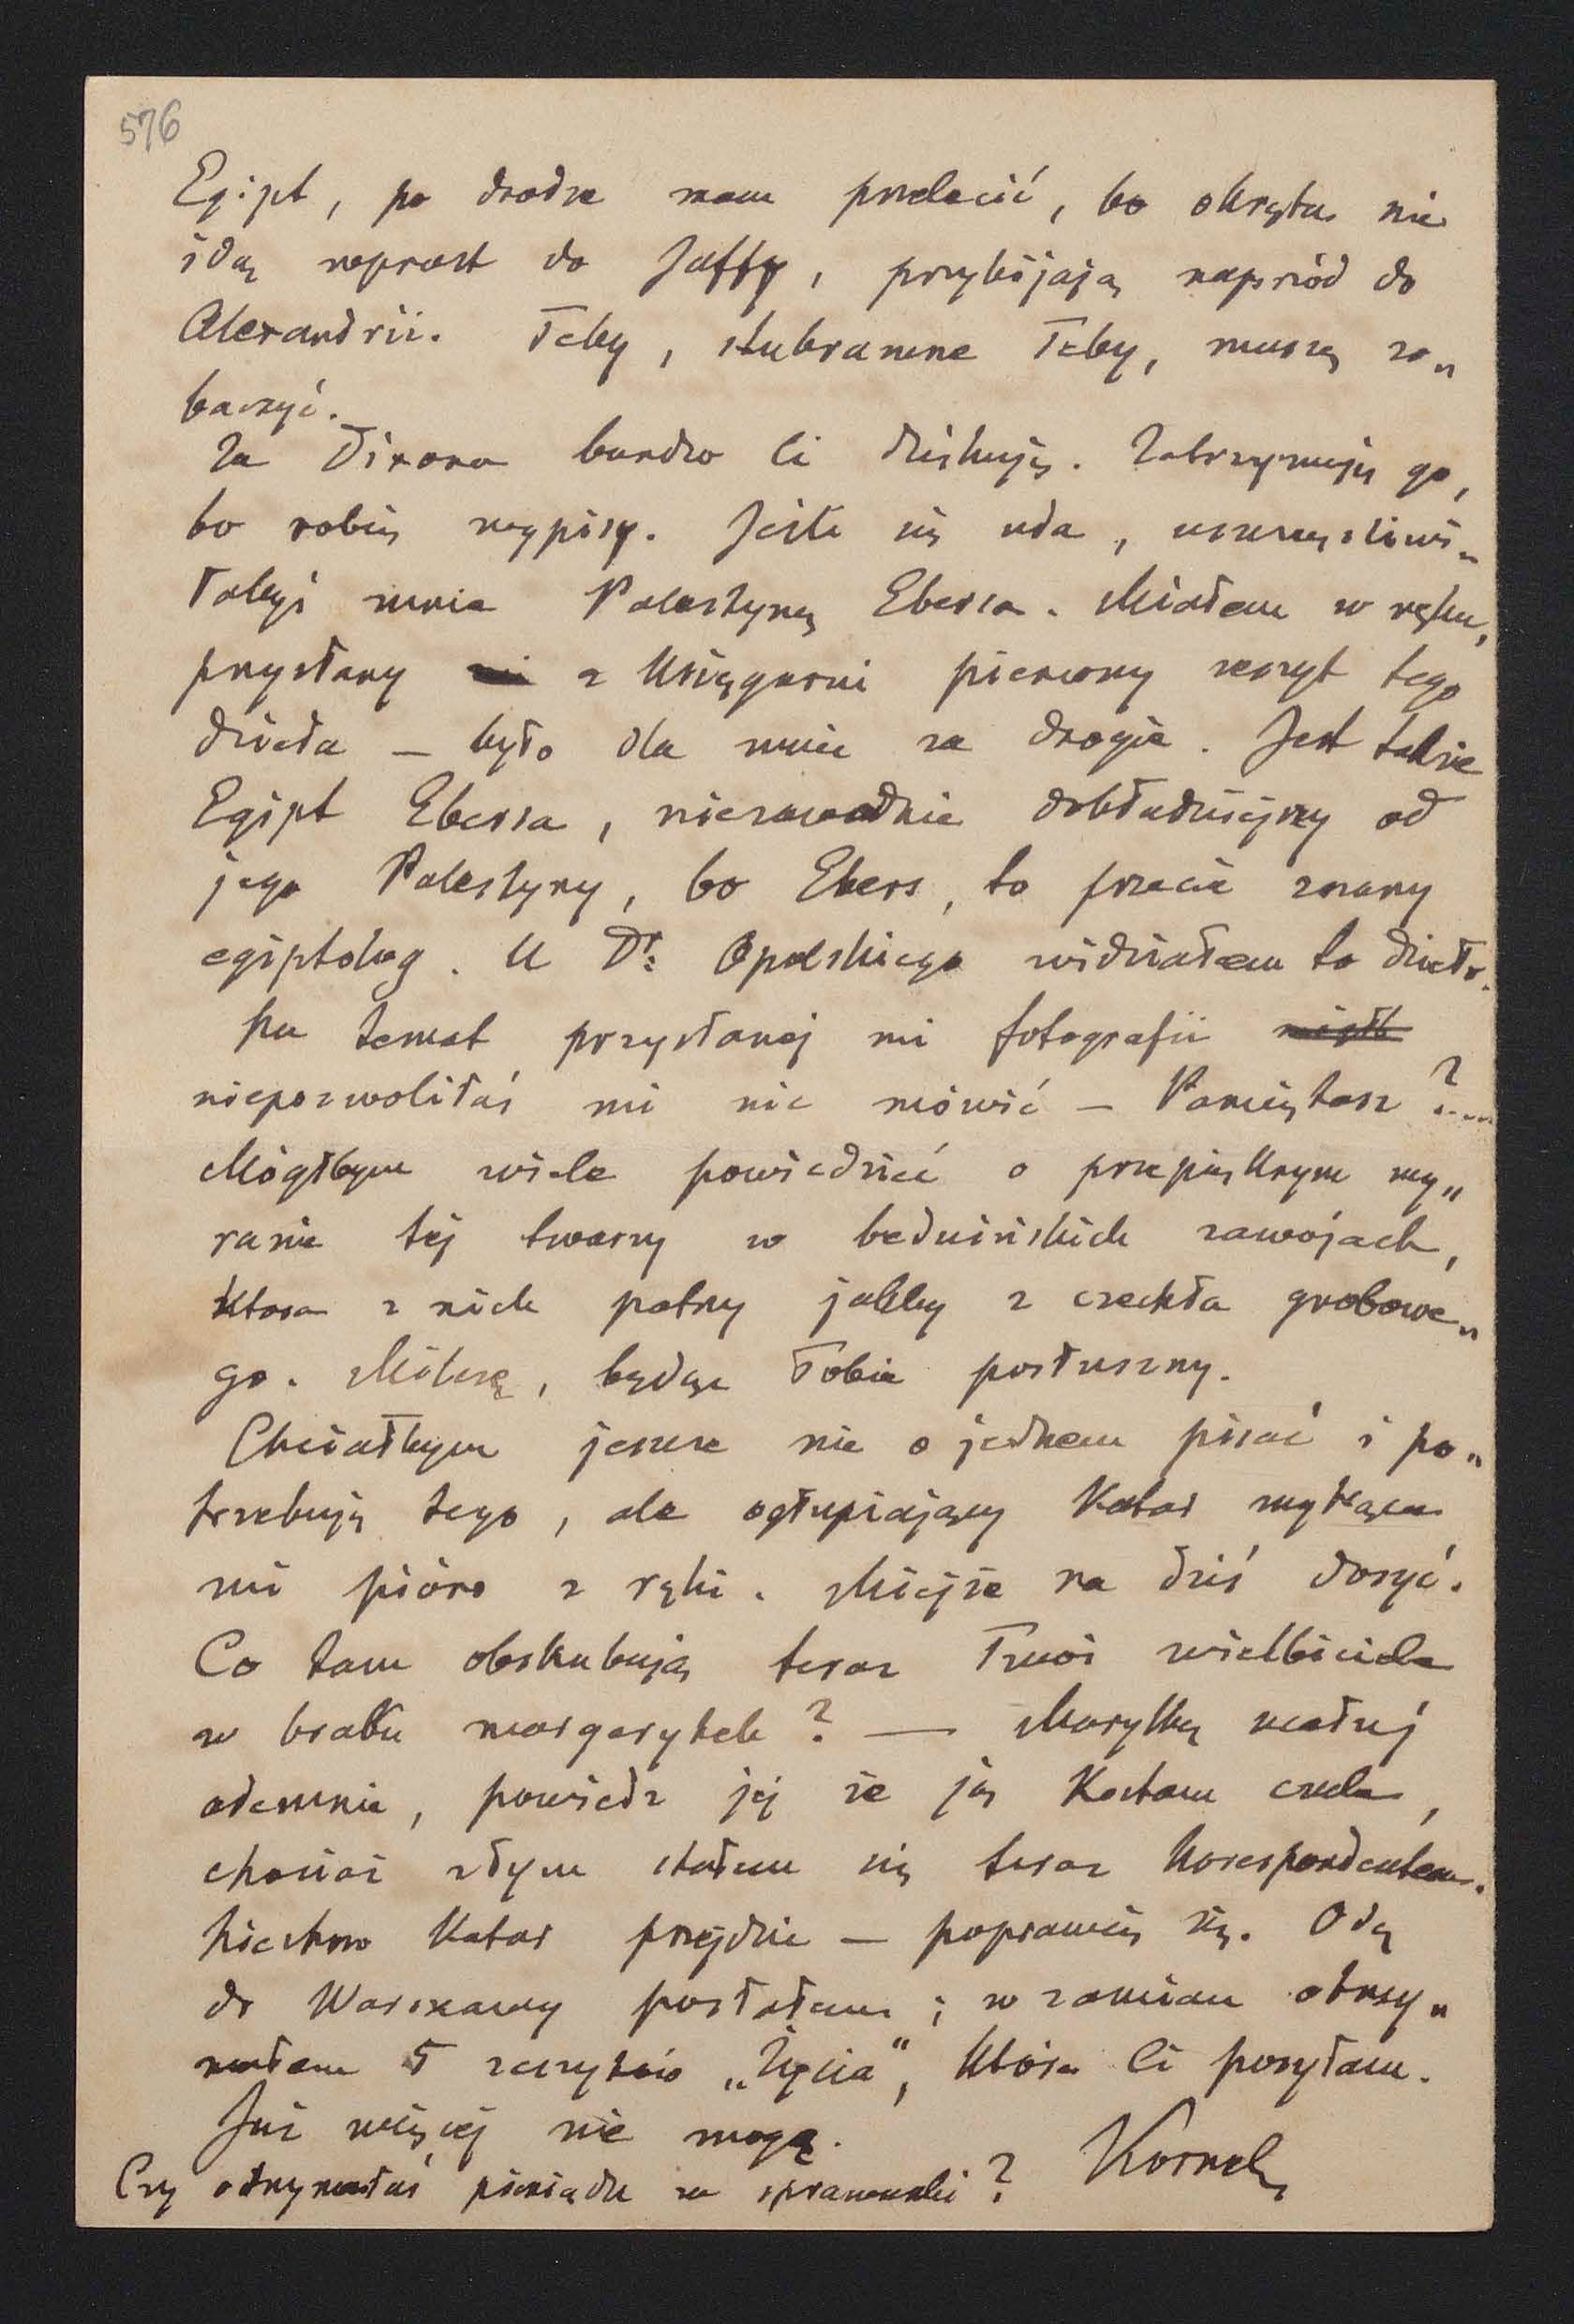 576
Egipt, po drodze mam przelecić, bo okręta nie
idą wprost do Jaffy, przybijają naprzód do
Alexandrii. Teby, stubramne Teby, muszę zo„
baczyć.
Za Dixona bardzo Ci dziękuję. Zatrzymuję go,
bo robię wypisy. Jeśli się uda, uszczęśliwi„
łabyś mnie Palestyną Ebersa. Miałem w ręku,
przysłany z Księgarni pierwszy zeszyt tego
dzieła — było dla mnie za drogie. Jest także
Egipt Ebersa, niezawodnie dokładniejszy od
jego Palestyny, bo Ebers, to przecie znany
egiptolog. U Dr: Opolskiego widziałem to dzieło.
Na temat przysłanej mi fotografii
niepozwoliłaś mi nic mówić — Pamiętasz?...
Mógłbym wiele powiedzieć o przepięknym wy„
razie tej twarzy w beduińskich zawojach,
która z nich patrzy jakby z czechła grobowe„
go. Milczę, będąc Tobie posłuszny.
Chciałbym jeszcze nie o jednem pisać i po„
trzebuję tego, ale ogłupiający Katar wytrąca
mi pióro z ręki. Miejże na dziś dosyć.
Co tam obskubują teraz Twoi wielbiciele
w braku margarytek? — Marylkę ucałuj
odemnie, powiedz jej że ją Kocham czule,
chociaż złym stałem się teraz Korespondentem.
Niechno Katar przejdzie — poprawię się. Odę
do Warszawy posłałem; w zamian otrzy„
małem 5 zeszytów „Życia", które Ci posyłam.
Już więcej nie mogę.
Kornel
Czy otrzymałaś pieniądze za sprawunki?